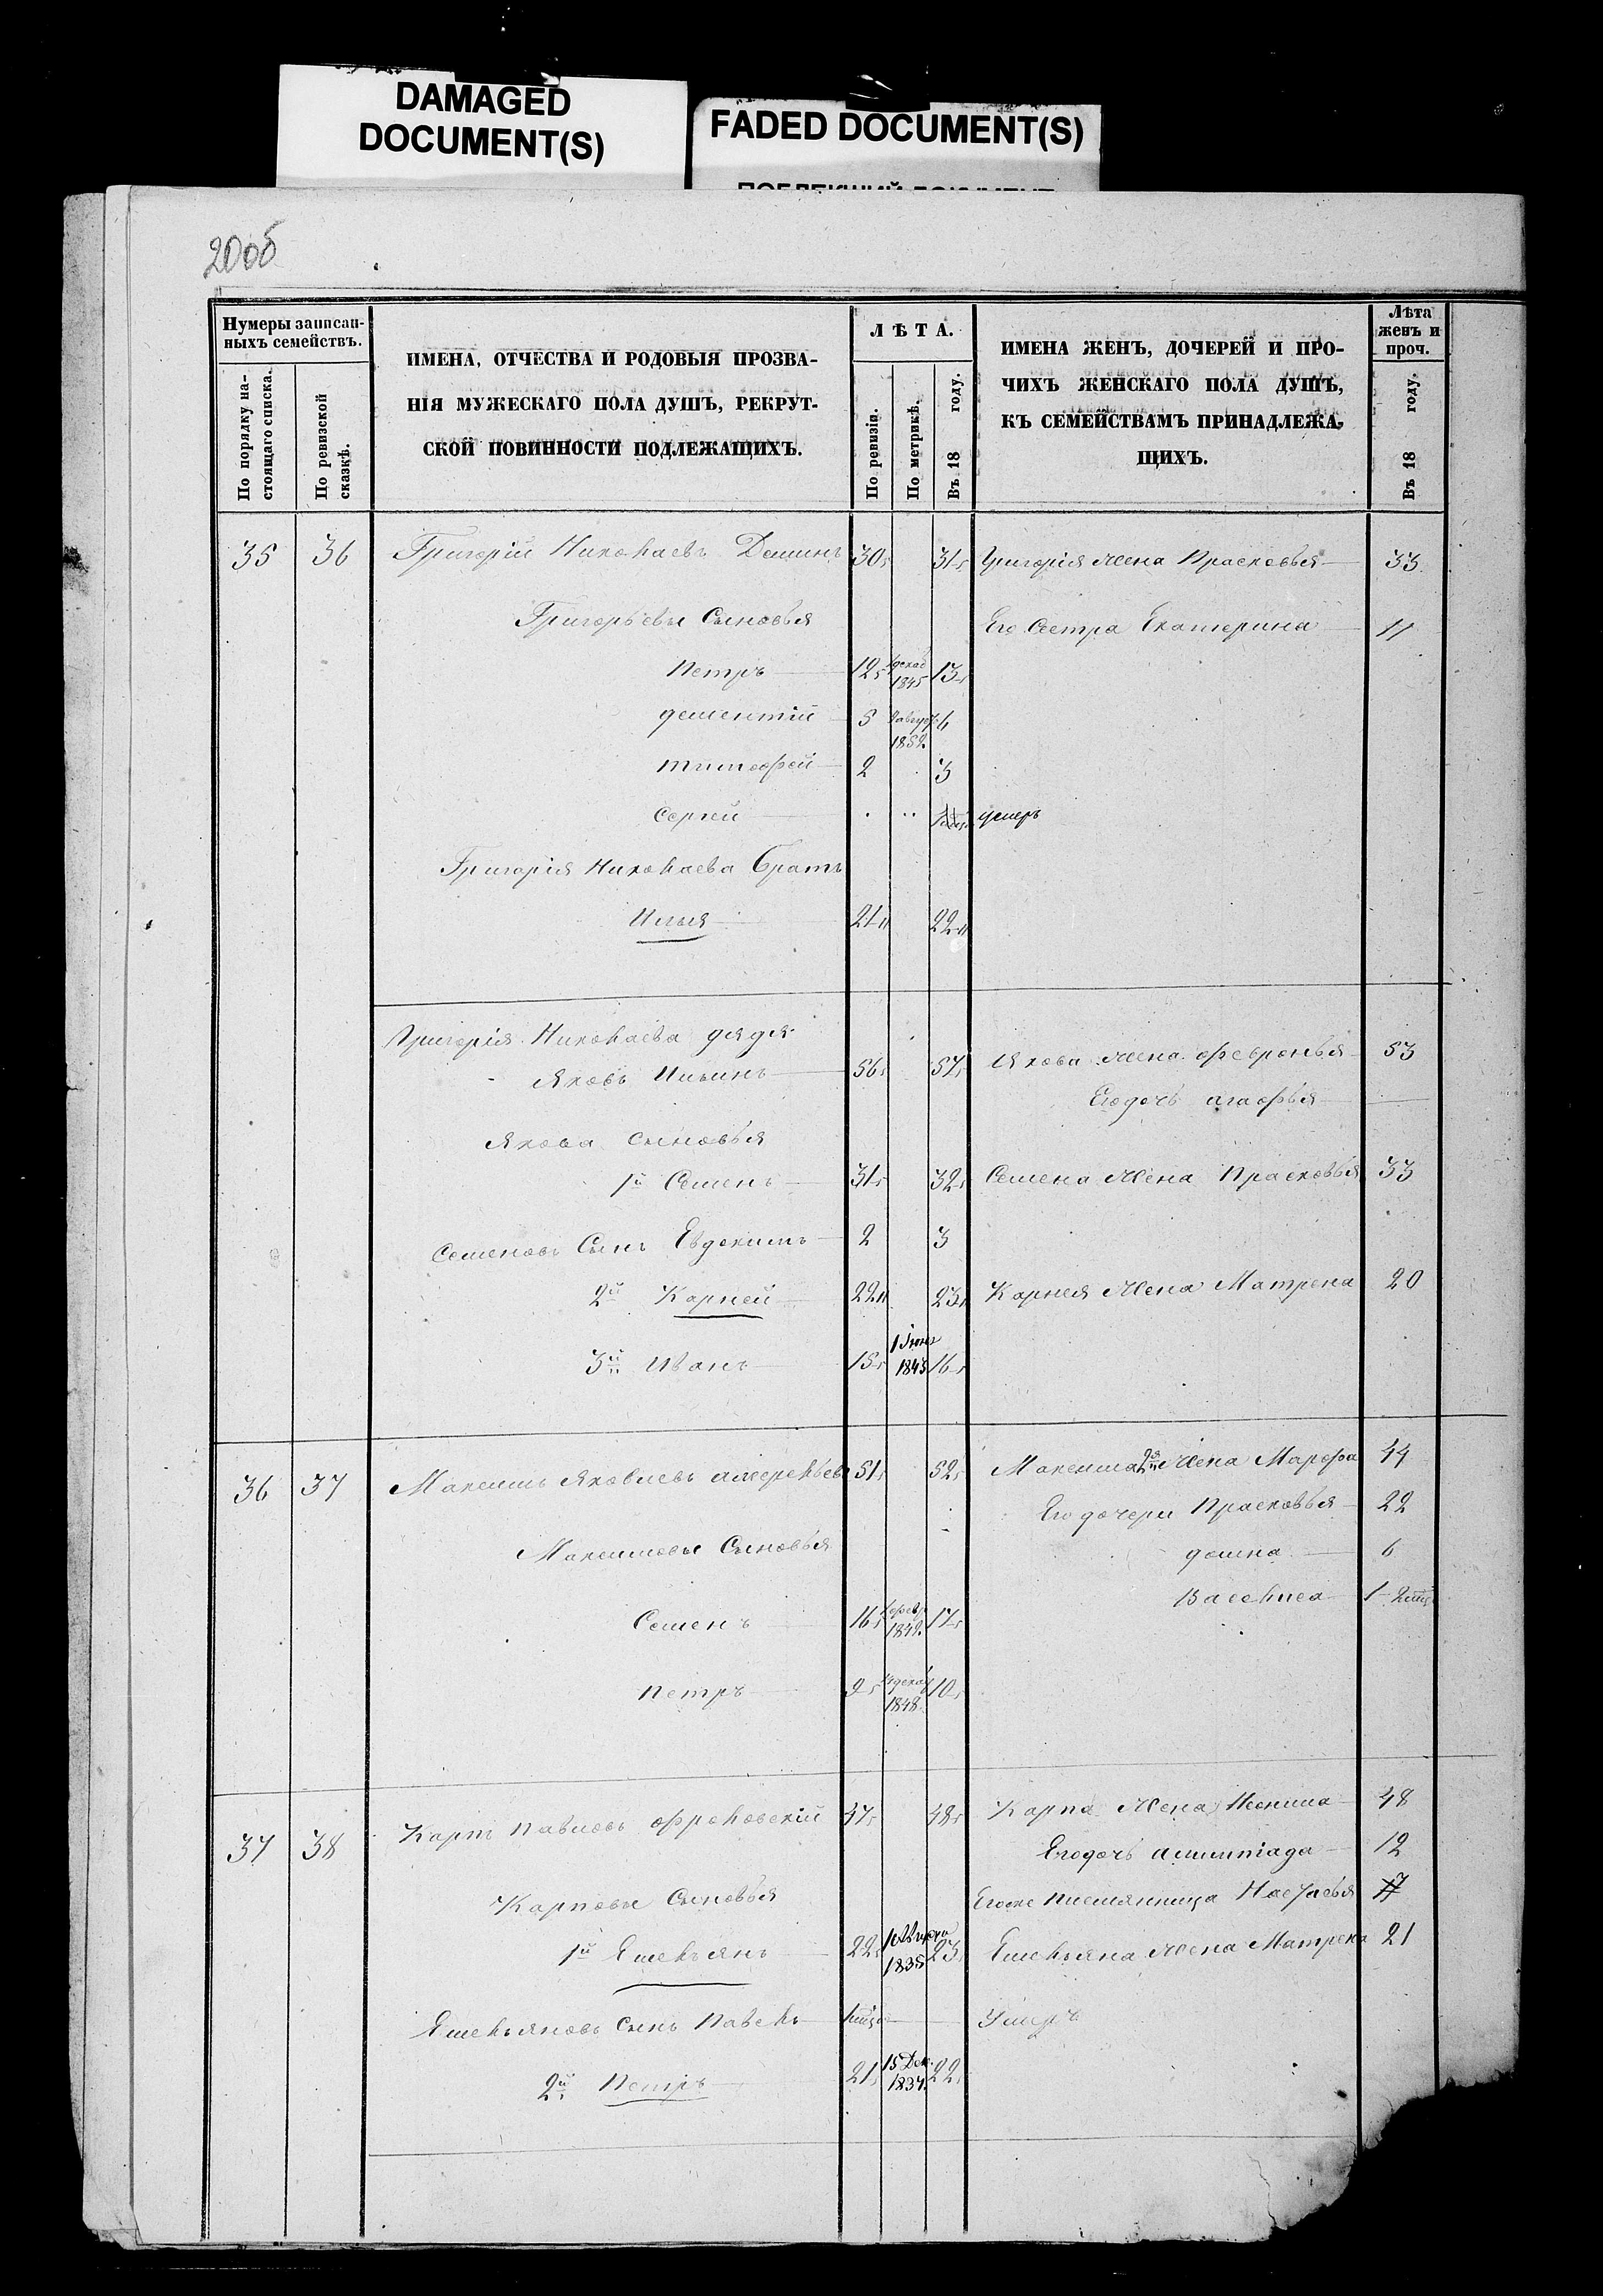 DAMAGED
DOCUMENT(S)
FADED DOCUMENT(S)
20об
Нумеры записан-
ныхъ семействъ.
По порядку на-
стоящаго списка.
По ревизской
сказкѣ.
ИМЕНА, ОТЧЕСТВА И РОДОВЫЯ ПРОЗВА-
НІЯ МУЖЕСКАГО ПОЛА ДУШЪ, РЕКРУТ-
СКОЙ ПОВИННОСТИ ПОДЛЕЖАЩИХЪ.
ЛѢТА.
По ревизіи.
По метрикѣ.
Въ 18 году.
ИМЕНА ЖЕНЪ, ДОЧЕРЕЙ И ПРО-
ЧИХЪ ЖЕНСКАГО ПОЛА ДУШЪ,
КЪ СЕМЕЙСТВАМЪ ПРИНАДЛЕЖА-
ЩИХЪ.
Лѣта
женъ и
проч.
Въ 18 году.
35 36 Григорій Николаевъ Деминъ 30 31 Григорія жена Прасковья 33
Григорьевы Сыновья Его Сестра Екатерина 11
Петръ 12 1845 13
дементій 5 1852
тимофей 2 3
Сергей умеръ
Григорія Николаева братъ
Илья 21 22
Григорія Николаева дядя
Яковъ Ильинъ 56 57 Якова жена февронья 53
Его дочь агафья
Якова сыновья
1й Семенъ 31 32 Семена жена Прасковья 33
Семеновъ Сынъ Евдокимъ 2 3
2й Карней 22 23 Карнея жена Матрена 20
3й Иванъ 15 1843 16
36 37 Максимъ Яковлевъ 51 52 Максима 2я жена Марфа 44
Его дочери Прасковья 22
Максимовы Сыновья домна 6
Василиса
Семенъ 16 1842 17
Петръ 9 1848 10
37 38 Карпъ Павловъ фроловскій 47 48 Карпа жена Неонила 48
Его дочь 12
Карповы Сыновья Его же племянница Настасья 17
1й Емельянъ 22 1835 23 Емельяна жена Матрена 21
Емельяновъ сынъ Павелъ Умеръ
2й Петръ 21 15 Дек. 1837 22